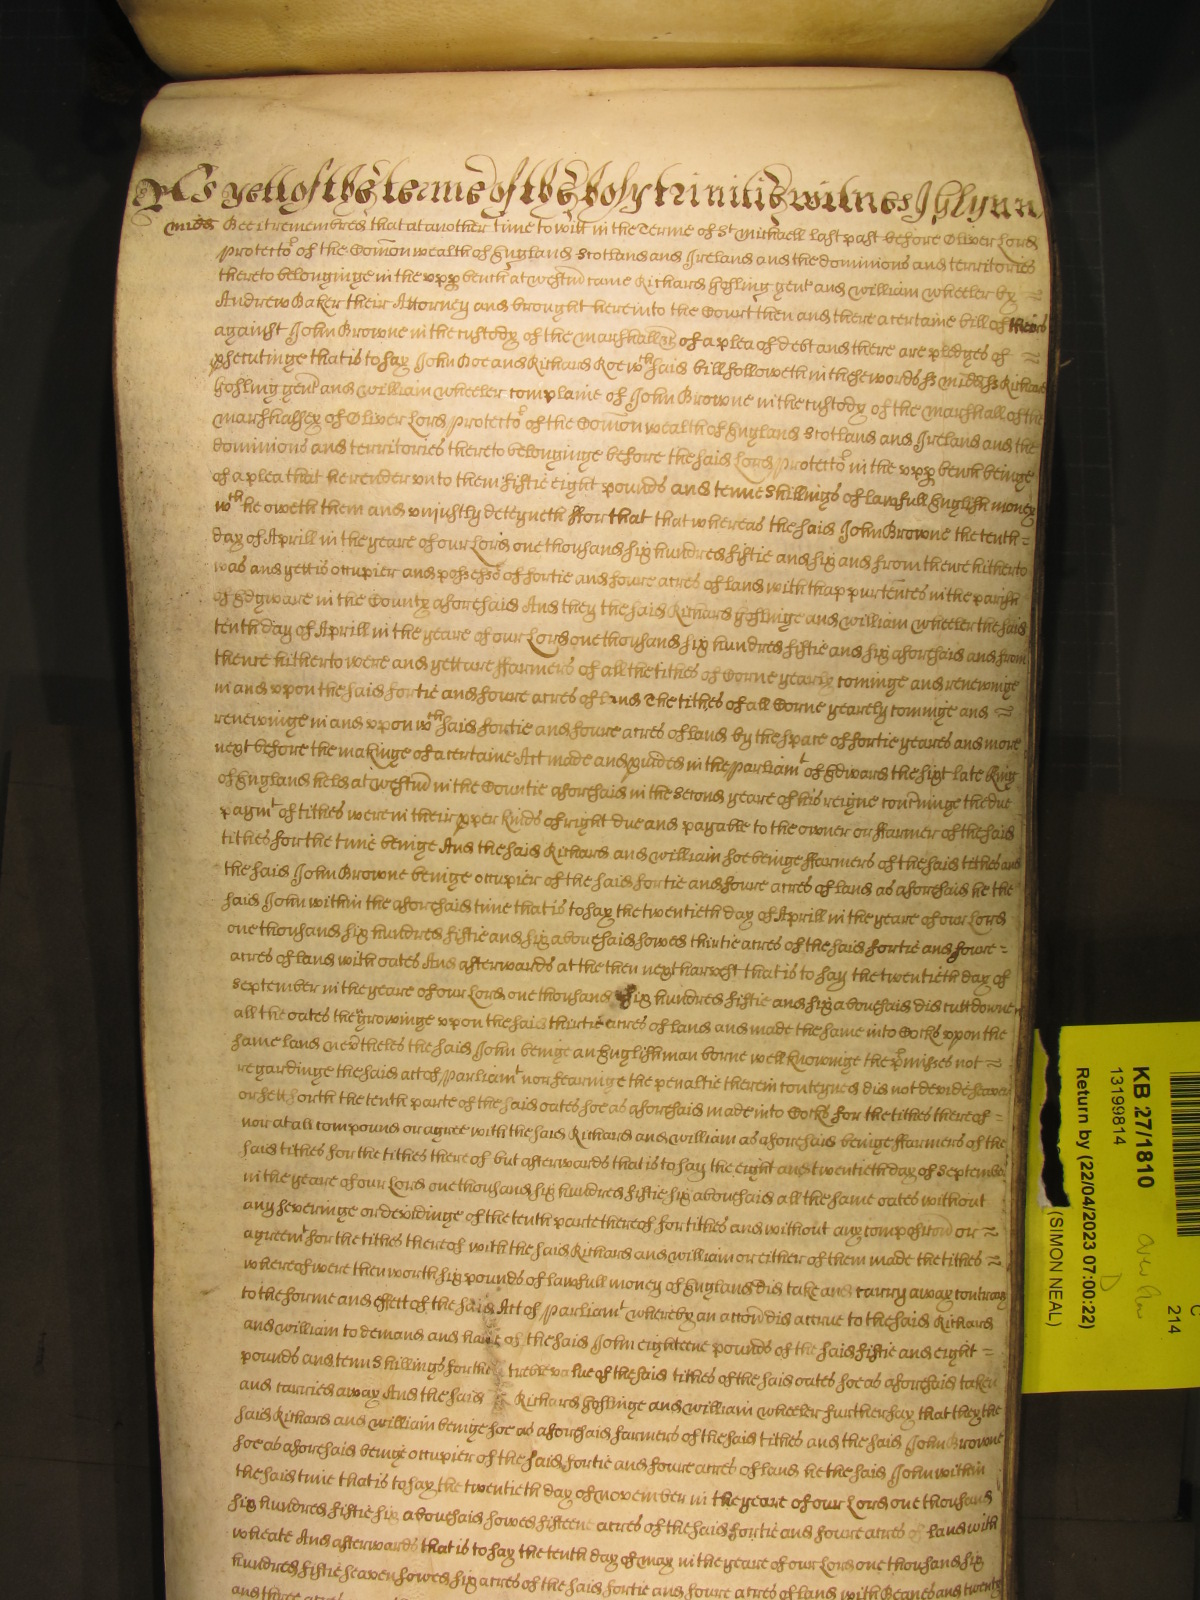 As yett of the terme of the holy trinitie witnes J Glynn
Midds Bee it remembred that at another time to witt in the Terme of St Michaell last past before Oliver Lord
Protector of the Comonwealth of England Scotland and Ireland and the dominions and territories
thereto belonginge in the upp bench at Westm came Richard Goslinge gent and William Wheeler by
Andrew Baker their Attorney and brought here into the Court then and there a certaine bill of theirs
against John Browne in the custody of the marshall &c of a plea of debt and there are pledges of
psecutinge that is to say John Doe and Richard Roe wch said bill followeth in these words ss Midds ss Richard
Gosling gent and William Wheeler complaine of John Browne in the custody of the marshall of the
marshalsey of Oliver Lord Protector of the Comonwealth of England Scotland and Ireland and the
dominions and territories thereto belonginge before the said Lord Protector in the upp bench beinge
of a plea that he render unto them fiftie eight pounds and tenne shillings of lawfull English money
wch he oweth them and unjustly deteyneth ffor that that whereas the said John Browne the tenth
day of Aprill in the yeare of our Lord one thousand six hundred fiftie and six and from thence hitherto
was and yett is occupier and possessor of fortie and foure acres of land with thappurtences in the parish
of Edgware in the County aforesaid And they the said Richard Goslinge and William Wheeler the said
tenth day of Aprill in the yeare of our Lord one thousand six hundred fiftie and six aforesaid and from
thence hitherto were and yett are ffarmers of all the tithes of Corne yearly cominge and renewinge
in and upon the said fortie and foure acres of land The tithes of all Corne yearely cominge and
renewinge in and upon wch said fortie and foure acres of land by the space of fortie yeares and more
next before the makinge of a certaine Act made and pvided in the parliamt of Edward the sixt late King
of England held at Westm in the Countie aforesaid in the second yeare of his reigne concninge the due
paymt of tithes were in their pper kinds of right due and payable to the owner or ffarmer of the said
tithes for the time beinge And the said Richard and William soe beinge ffarmers of the said tithes and
the said John Browne beinge occupier of the said fortie and foure acres of land as aforesaid he the
said John within the aforesaid time that is to say the twentieth day of Aprill in the yeare of our Lord
one thousand six hundred fiftie and six abovesaid sowed thirtie acres of the said fortie and foure
acres of land with oates And afterwards at the then next harvest that is to say the twentieth day of
September in the yeare of our Lord one thousand six hundred fiftie and six abovesaid did cutt downe
all the oates then growinge upon the said thirtie acres of land and made the same into Cocks upon the
same land nevtheles the said John beinge an Englishman borne well knowinge the pmisses not
regardinge the said act of Parliamt nor fearinge the penaltie therein conteyned did not devide sever
or sett forth the tenth parte of the said oates soe as aforesaid made into Cocks for the tithes thereof
nor at all compound or agree with the said Richard and William as aforesaid beinge ffarmers of the
said tithes for the tithes thereof but afterwards that is to say the eight and twentieth day of September
in the yeare of our Lord one thousand six hundred fiftie six abovesaid all the same oates without
any severinge or devidinge of the tenth parte thereof for tithes and without any composicon or
agreemt for the tithes thereof with the said Richard and William or either of them made the tithes
whereof were then worth six pounds of lawfull money of England did take and carry away contrary
to the forme and effect of the said Act of Parliamt whereby an accon did accrue to the said Richard
and William to demand and have of the said John eighteene pounds of the said fiftie and eight
pounds and tenn shillings for the treble value of the said tithes of the said oates soe as aforesaid taken
and carried away And the said Richard Goslinge and William Wheeler further say that they the
said Richard and William beinge soe as aforesaid farmers of the said tithes and the said John Browne
soe as aforesaid beinge occupier of the said fortie and foure acres of land he the said John within
the said time that is to say the twentieth day of November in the yeare of our Lord one thousand
six hundred fiftie six abovesaid sowed fifteene acres of the said fortie and foure acres of land with
wheate And afterwards that is to say the tenth day of may in the yeare of our Lord one thousand six
hundred fiftie seaven sowed six acres of the said fortie and foure acres of land with Beanes and twenty
and three acres
KB 27/1810
13199814
Return by (22/04/2023 07:00:22)
(SIMON NEAL)
214